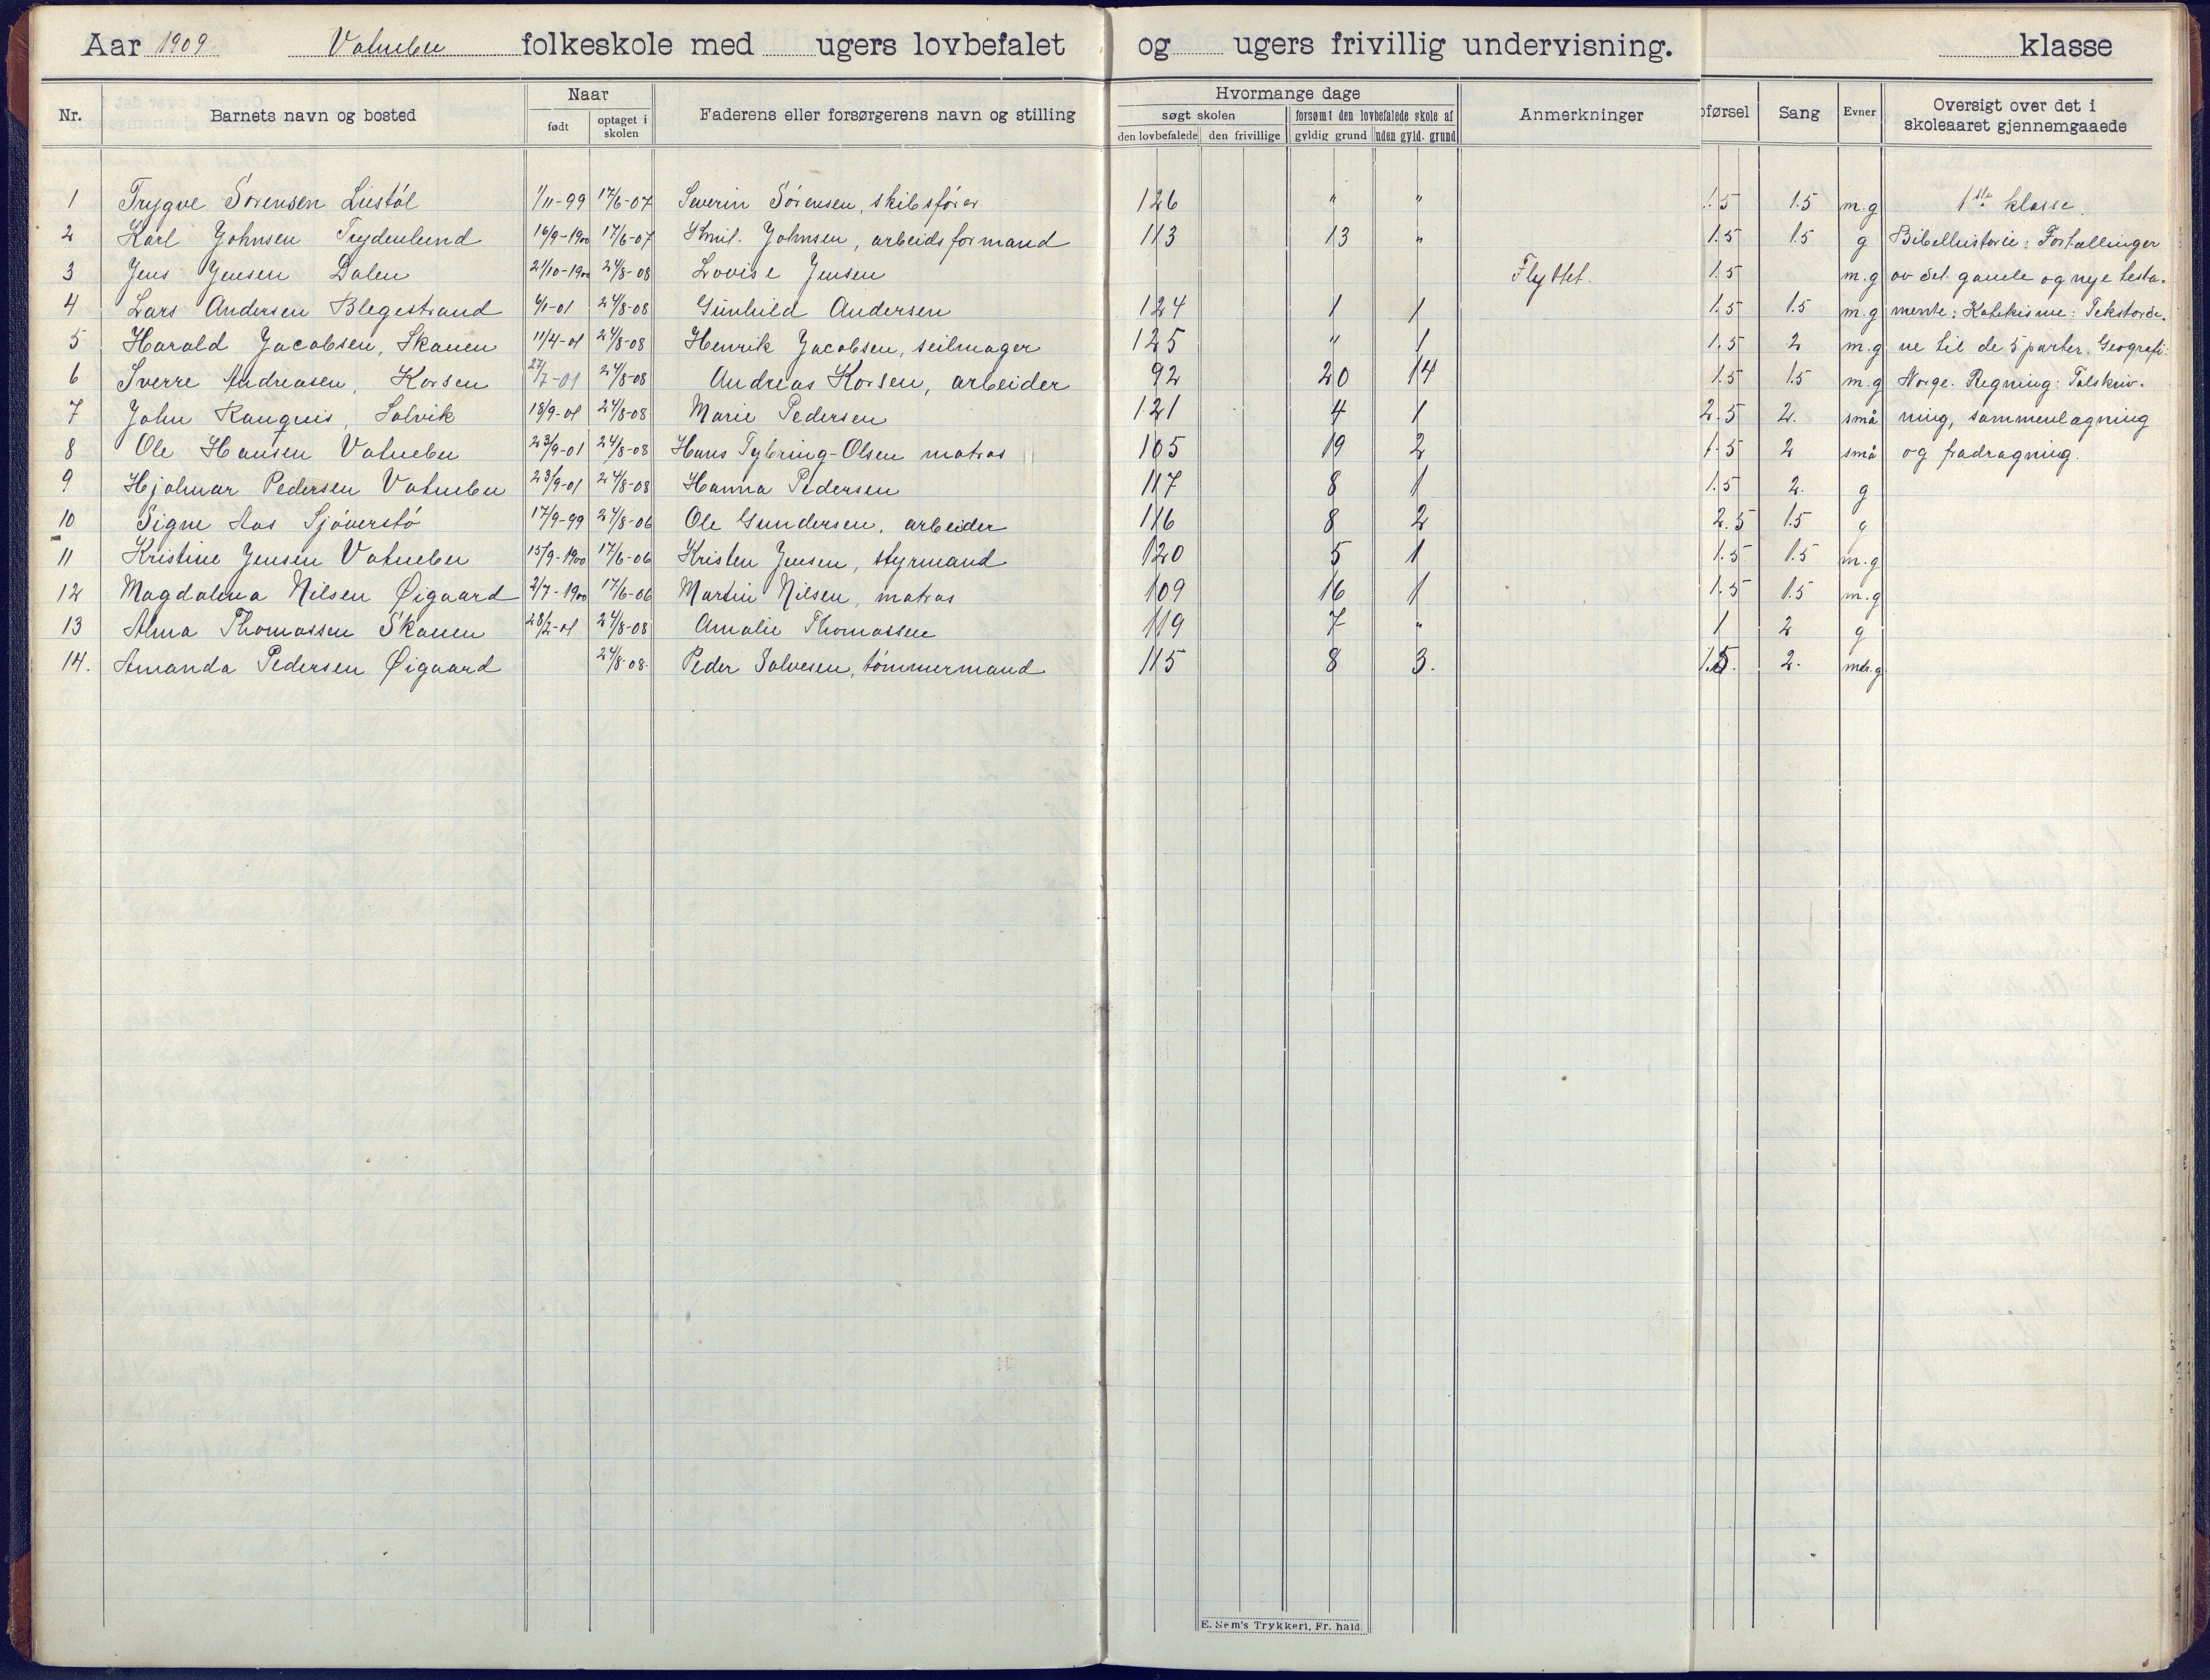 Aar 1909 Vatnebu folkeskole med ugers lovbefalet og ugers frivillig undervisning. klasse
Nr. Barnets navn og bosted Naar født optaget i skolen Faderens eller forsørgerens navn og stilling Hvormange dage søgt skolen den lovbefalede den frivillige forsømt den lovbefalede skole af gyldig grund uden gyld. grund Anmerkninger pførsel Sang Evner Oversigt over det i skoleaaret gjennemgaaede
1 Trygve Sørensen Liestøl 1/11-99 17/6-07 Severin Sørensen, skibsfører 126 " " 1.5 1.5 m.g 1ste klasse.
2 Karl Johnsen Trydenlund 16/9-1900 17/6-07 Emil Johnsen, arbeidsformand 113 13 " 1.5 1.5 g Bibelhistorie: Fortællinger
3 Jens Jensen Dalen 21/10-1900 24/8-08 Lovise Jensen Flyttet. 1.5 m.g av det gamle og nye testa-
4 Lars Andersen Blegestrand 6/1-01 24/8-08 Gunhild Andersen 124 1 1 1.5 1.5 m.g mente: Katekisme: Tekstorde-
5 Harald Jacobsen, Skauen 11/4-01 24/8-08 Henrik Jacobsen, seilmager 125 " 1 1.5 2 m.g ne til de 5 parter. Geografi:
6 Sverre Andreasen, Korsen 27/7-01 24/8-08 Andreas Korsen, arbeider 92 20 14 1.5 1.5 m.g Norge. Regning: Talskriv-
7 John Ranqvis, Solvik 18/9-01 24/8-08 Marie Pedersen 121 4 1 2.5 2. små ning, sammenlægning
8 Ole Hansen Vatnebu 23/9-01 24/8-08 Hans Tybring-Olsen matros 105 19 2 1.5 2 små og fradragning.
9 Hjalmar Pedersen Vatnebu 23/9-01 24/8-08 Hanna Pedersen 117 8 1 1.5 2. g
10 Signe Aas Sjøverstø 17/9-99 24/8-06 Ole Gundersen, arbeider 116 8 2 2.5 1.5 g
11 Kristine Jensen Vatnebu 15/9-1900 17/6-06 Kristen Jensen, styrmand 120 5 1 1.5 1.5 m.g
12 Magdalena Nilsen Øigaard 2/7-1900 17/6-06 Martin Nilsen, matros 109 16 1 1.5 1.5 m.g
13 Alma Thomassen Skauen 28/2-01 24/8-08 Amalie Thomassen 119 7 " 1 2 g
14. Amanda Pedersen Øigaard 24/8-08. Peder Salvesen, tømmermand 115 8 3. 1.5. 2. mdr.g
E. Sem's Trykkeri, Fr. hald.